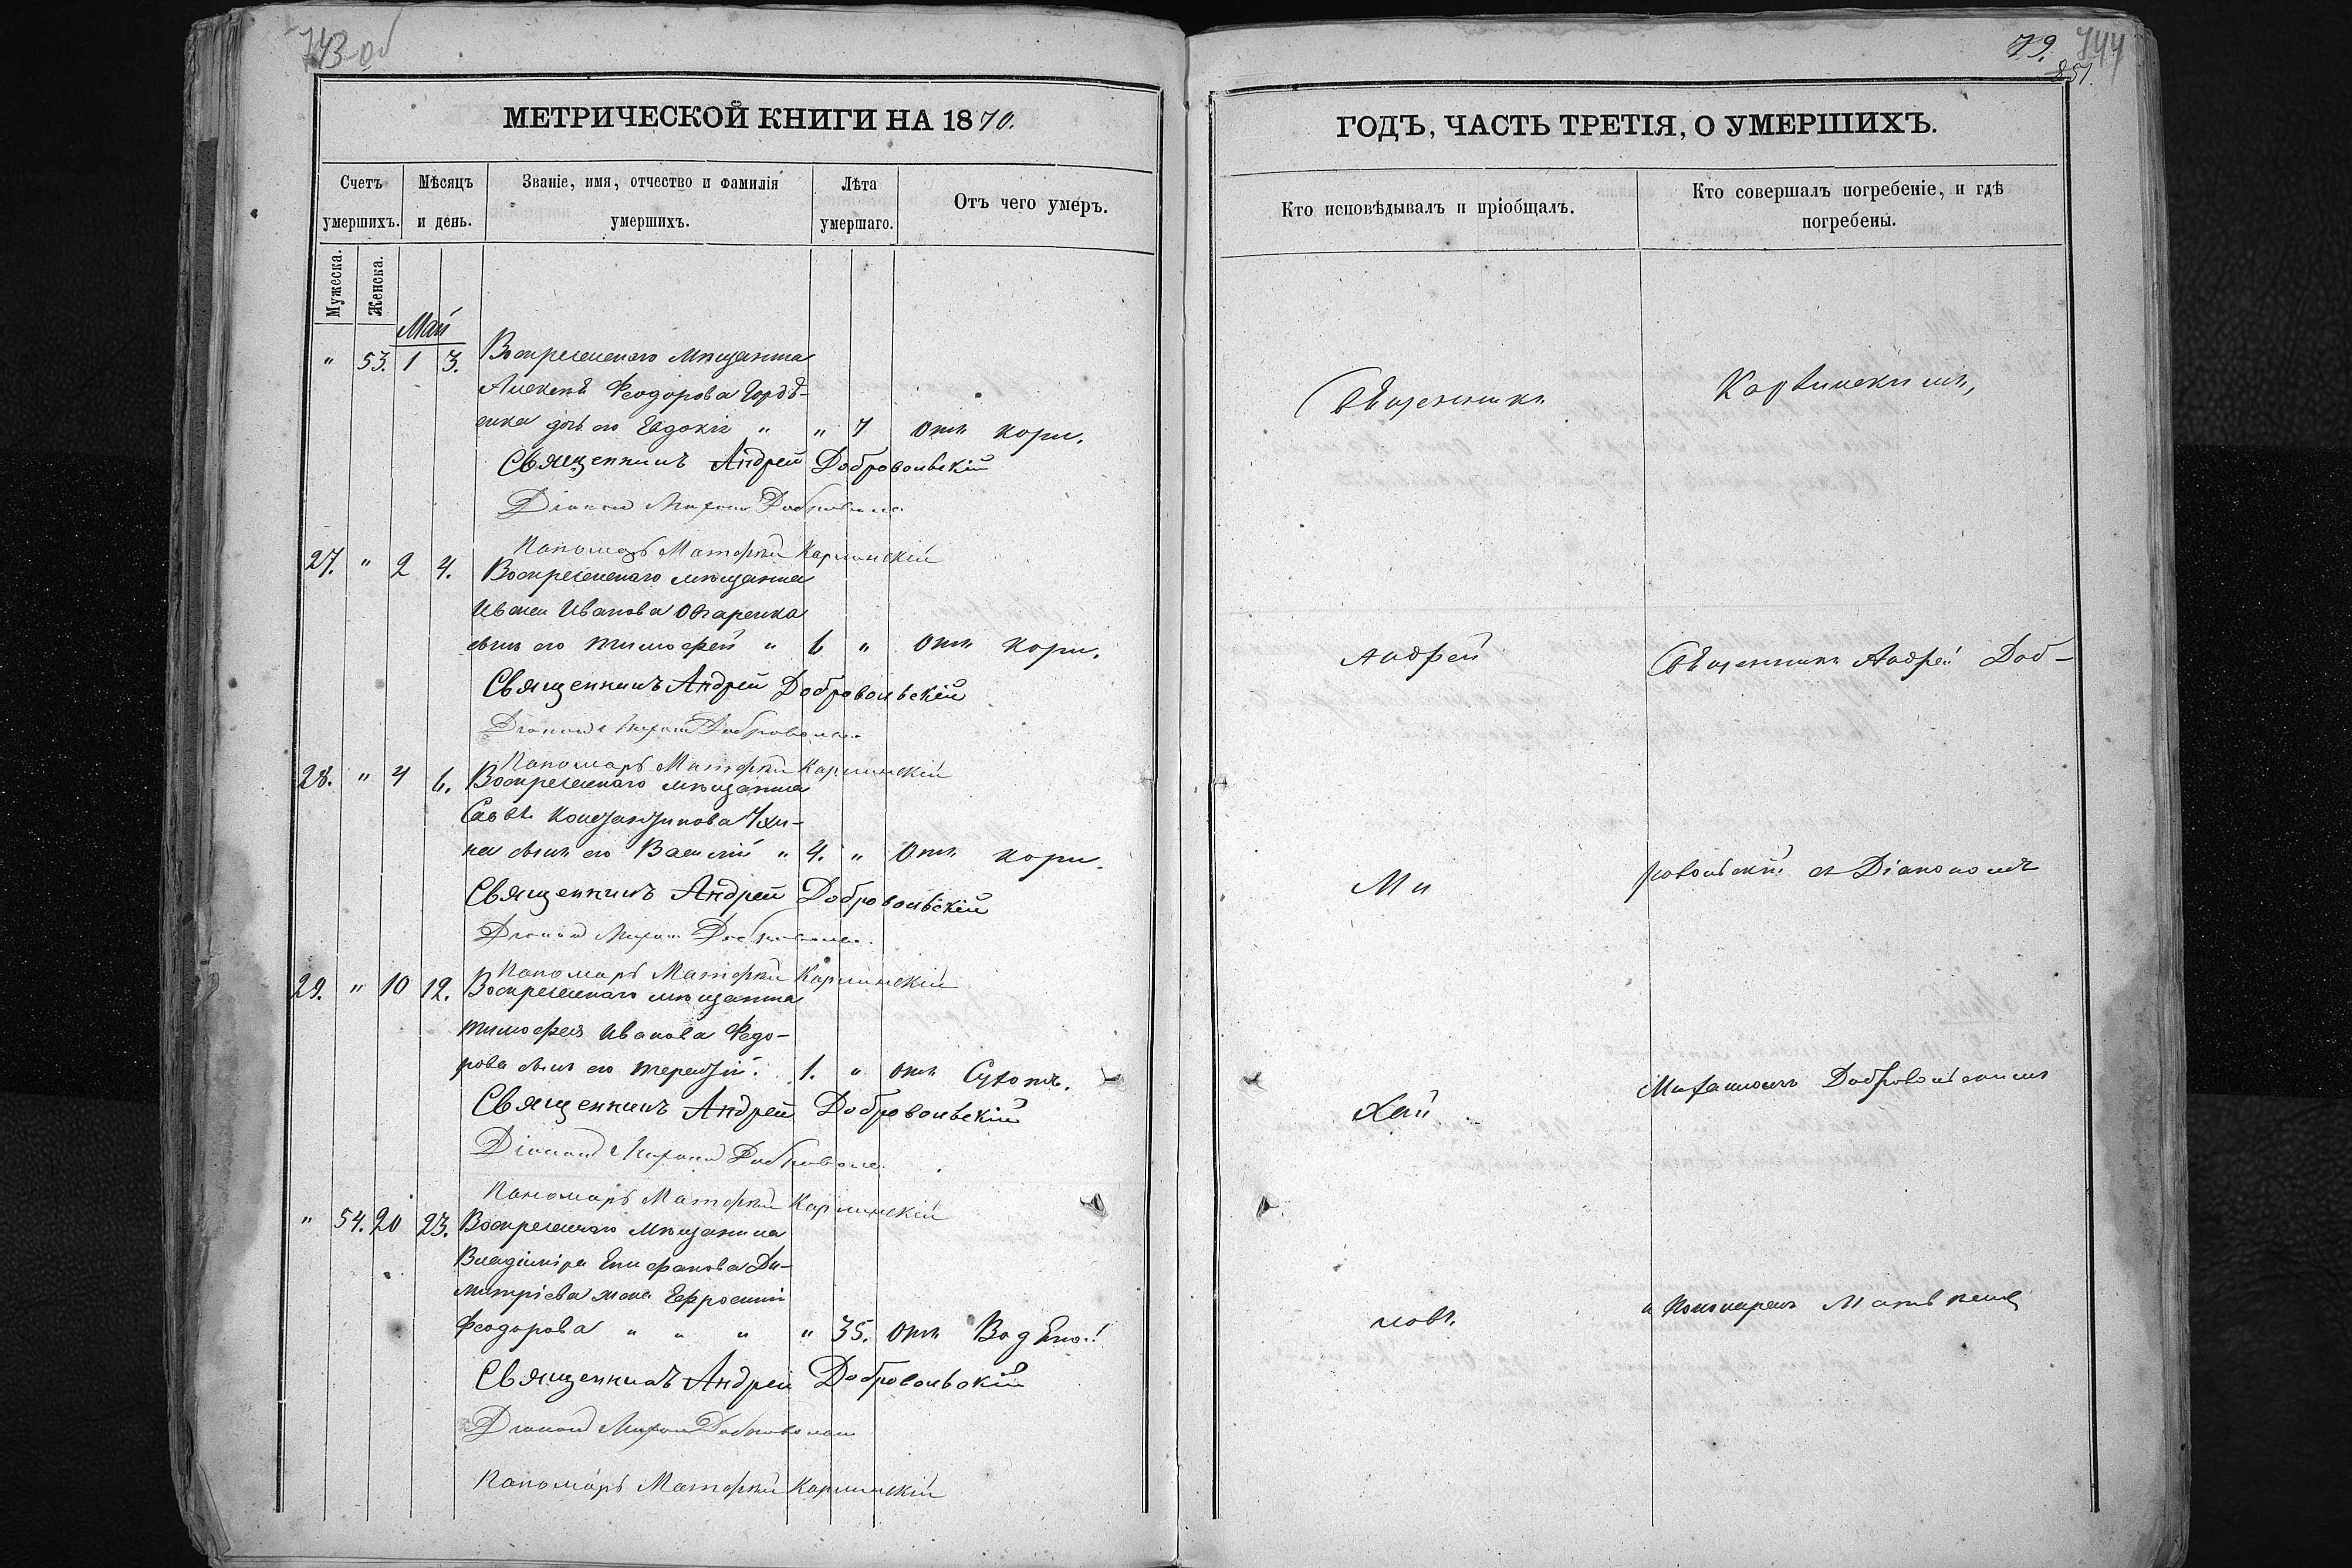 743 об
МЕТРИЧЕСКОЙ КНИГИ НА 1870.
Счетъ умершихъ.
Мѣсяцъ и день.
Званіе, имя, отчество и фамилія умершихъ.
Лѣта умершаго.
Отъ чего умеръ.
Мужеска.
Женска.
Май
" 53. 1 3. Воскресенскаго мѣщанина
Алексея Феодорова
дочь его Евдокія " " 7 отъ кори.
Священникъ Андрей Добровольскій
Діаконъ Михаилъ
Пономарь Матфей Карпинскій
27. " 2 4. Воскресенскаго мѣщанина
Ивана Иванова
сынъ его Тимофей " 6 " отъ кори.
Священникъ Андрей Добровольскій
Діаконъ Михаилъ
Пономарь Матфей Карпинскій
28. " 4 6. Воскресенскаго мѣщанина
Саввы Константинова
сынъ его Василій " 4. " отъ кори.
Священникъ Андрей Добровольскій
Діаконъ Михаилъ
Пономарь Матфей Карпинскій
29. " 10 12. Воскресенскаго мѣщанина
Тимофея Иванова Федо-
рова сынъ его Терентій. 1. " отъ Сухотъ.
Священникъ Андрей Добровольскій
Діаконъ Михаилъ
Пономарь Матфей Карпинскій
" 54. 20 23. Воскресенскаго мѣщанина
Владиміра Епифанова Ди-
митріева жена Евфросинія
Феодорова " " " " 35. отъ
Священникъ Андрей Добровольскій
Діаконъ Михаилъ
Пономарь Матфей Карпинскій
79. 744
851.
ГОДЪ, ЧАСТЬ ТРЕТІЯ, О УМЕРШИХЪ.
Кто исповѣдывалъ и пріобщалъ.
Кто совершалъ погребеніе, и гдѣ погребены.
Священникъ
Андрей
Ми
хай
ловъ.
Карпинскимъ,
Священникъ Андрей Доб-
ровольскій съ Діакономъ
Михаиломъ Добровольскимъ
и Пономаремъ